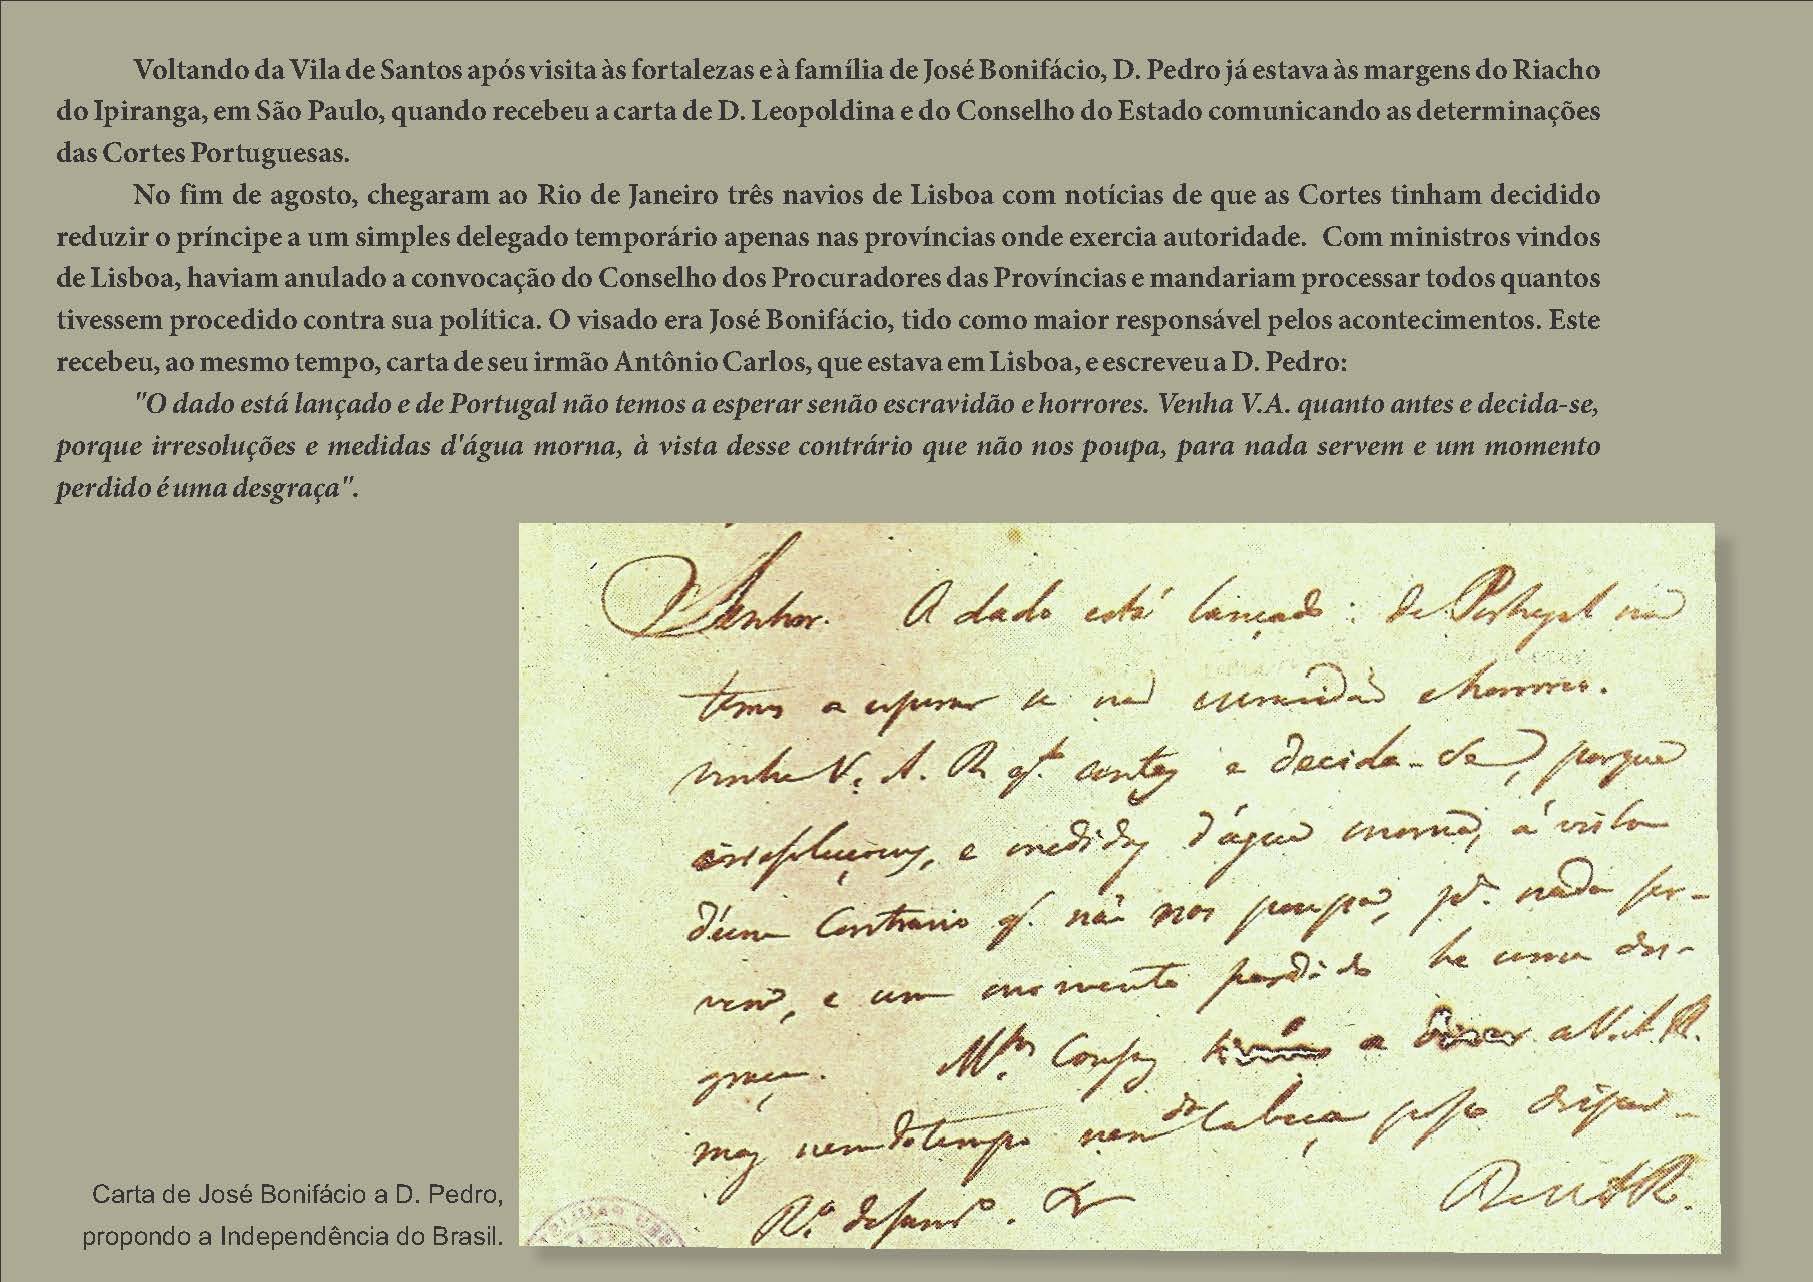 Voltando da Vila de Santos após visita às fortalezas e à família de José Bonifácio, D. Pedro já estava às margens do Riacho
do Ipiranga, em São Paulo, quando recebeu a carta de D. Leopoldina e do Conselho do Estado comunicando as determinações
das Cortes Portuguesas.
No fim de agosto, chegaram ao Rio de Janeiro três navios de Lisboa com notícias de que as Cortes tinham decidido
reduzir o príncipe a um simples delegado temporário apenas nas províncias onde exercia autoridade. Com ministros vindos
de Lisboa, haviam anulado a convocação do Conselho dos Procuradores das Províncias e mandariam processar todos quantos
tivessem procedido contra sua política. O visado era José Bonifácio, tido como maior responsável pelos acontecimentos. Este
recebeu, ao mesmo tempo, carta de seu irmão Antônio Carlos, que estava em Lisboa, e escreveu a D. Pedro:
"O dado está lançado e de Portugal não temos a esperar senão escravidão e horrores. Venha V.A. quanto antes e decida-se,
porque irresoluções e medidas d'água morna, à vista desse contrário que não nos poupa, para nada servem e um momento
perdido é uma desgraça".
Senhor. O dado está lançado: de Portugal não
temos a esperar se não escravidão e horrores.
venha V. A. R. qto. antes e decida-se, porque
irresoluçoens, e medidas d'água morna, á vista
d'um Contrario q. não nos poupa, pa. nada ser-
vem, e um momento perdido he uma des-
graça. Mtas. Cousas a dizer a V.A.R.
mas nem do tempo nem da Cabeça posso dispor
De V.A.R.
Carta de José Bonifácio a D. Pedro,
propondo a Independência do Brasil.